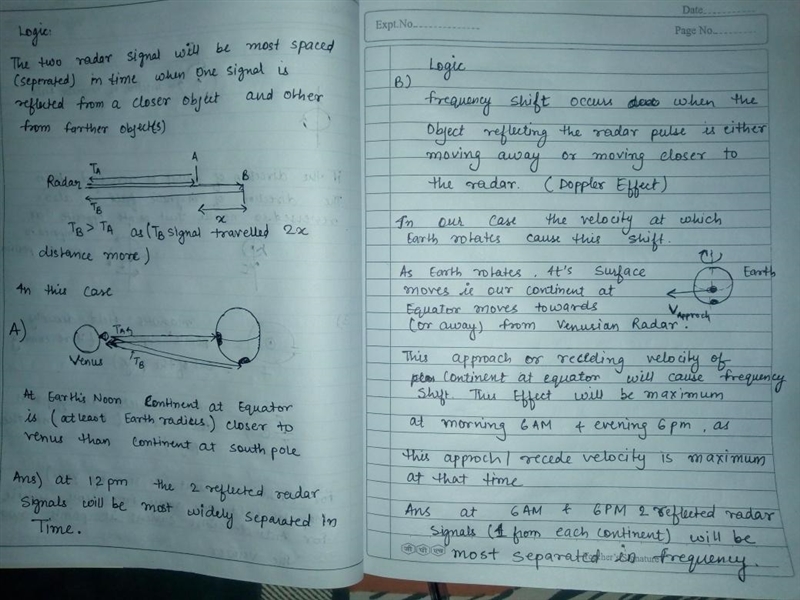 Logic:
The two radar signal will be most spaced
(seperated) in time when one signal is
reflected from a closer object and other
from farther object(s)
A
TA
Radar
B
TB
x
TB > TA as (TB signal travelled 2x
distance more)
In this case
A)
TA
Venus
TB
At Earth's Noon Continent at Equator
is (atleast Earth radius) closer to
venus than continent at south pole
Ans) at 12pm the 2 reflected radar
Signals will be most widely separated in
Time.
Date
Expt.No.
Page No.
Logic
B)
frequency shift occurs when the
Object reflecting the radar pulse is either
moving away or moving closer to
the radar. (Doppler Effect)
In our case the velocity at which
Earth rotates cause this shift.
As Earth rotates. It's Surface
Earth
moves is our continent at
Equator moves towards
VApproch
(or away) from Venusian Radar.
This approach or receding velocity of
Continent at equator will cause frequency
Shift This Effect will be maximum
at morning 6AM & evening 6pm, as
this approch/ recede velocity is maximum
at that time
Ans at 6AM & 6PM 2 reflected radar
Signals (1 from each continent) will be
most separated in frequency.